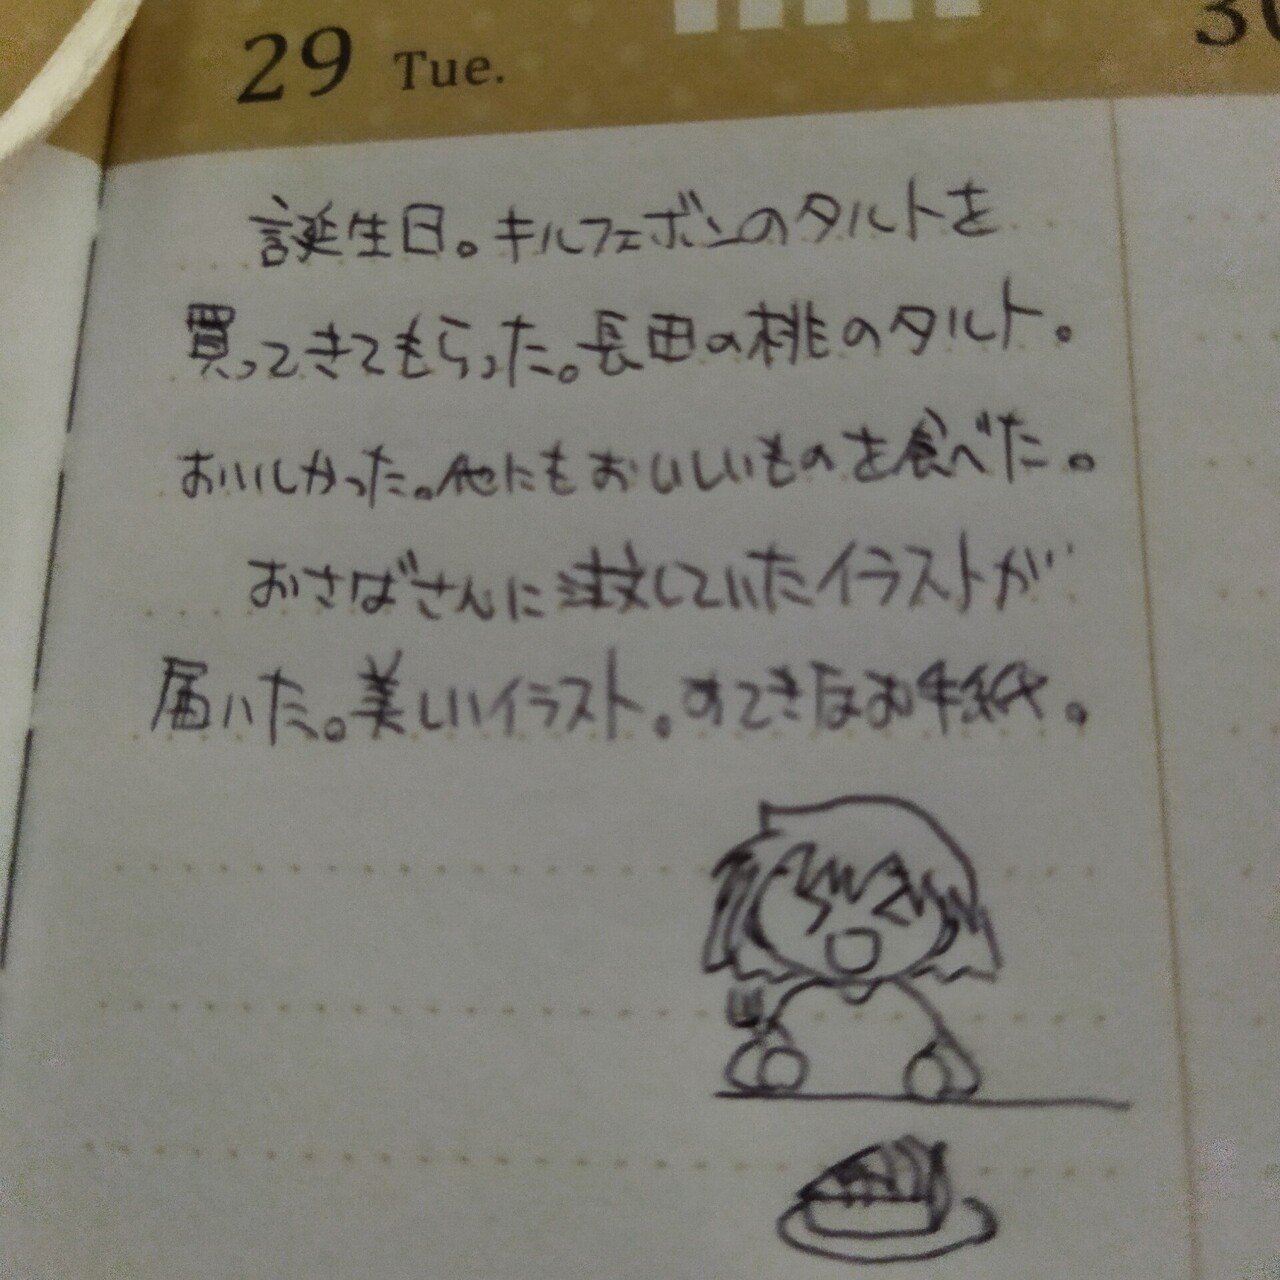 29 Tue.
30
誕生日。キルフェボンのタルトを
買ってきてもらった。長田の桃のタルト。
おいしかった。他にもおいしいものを食べた。
おさばさんに注文していたイラストが
届いた。美しいイラスト。すてきなお手紙。